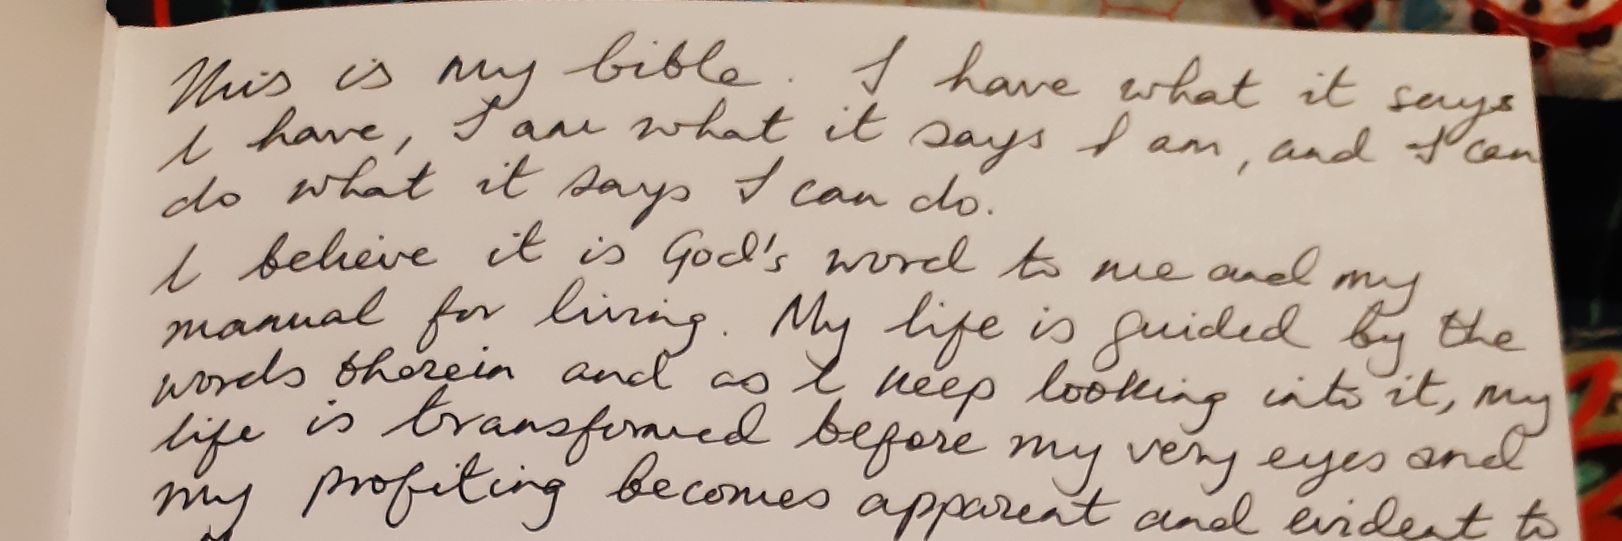 This is my bible. I have what it says
I have, I am what it says I am, and I can
do what it says I can do.
I believe it is God's word to me and my
manual for living. My life is guided by the
words therein and as I keep looking into it, my
life is transformed before my very eyes and
my profiting becomes apparent and evident to